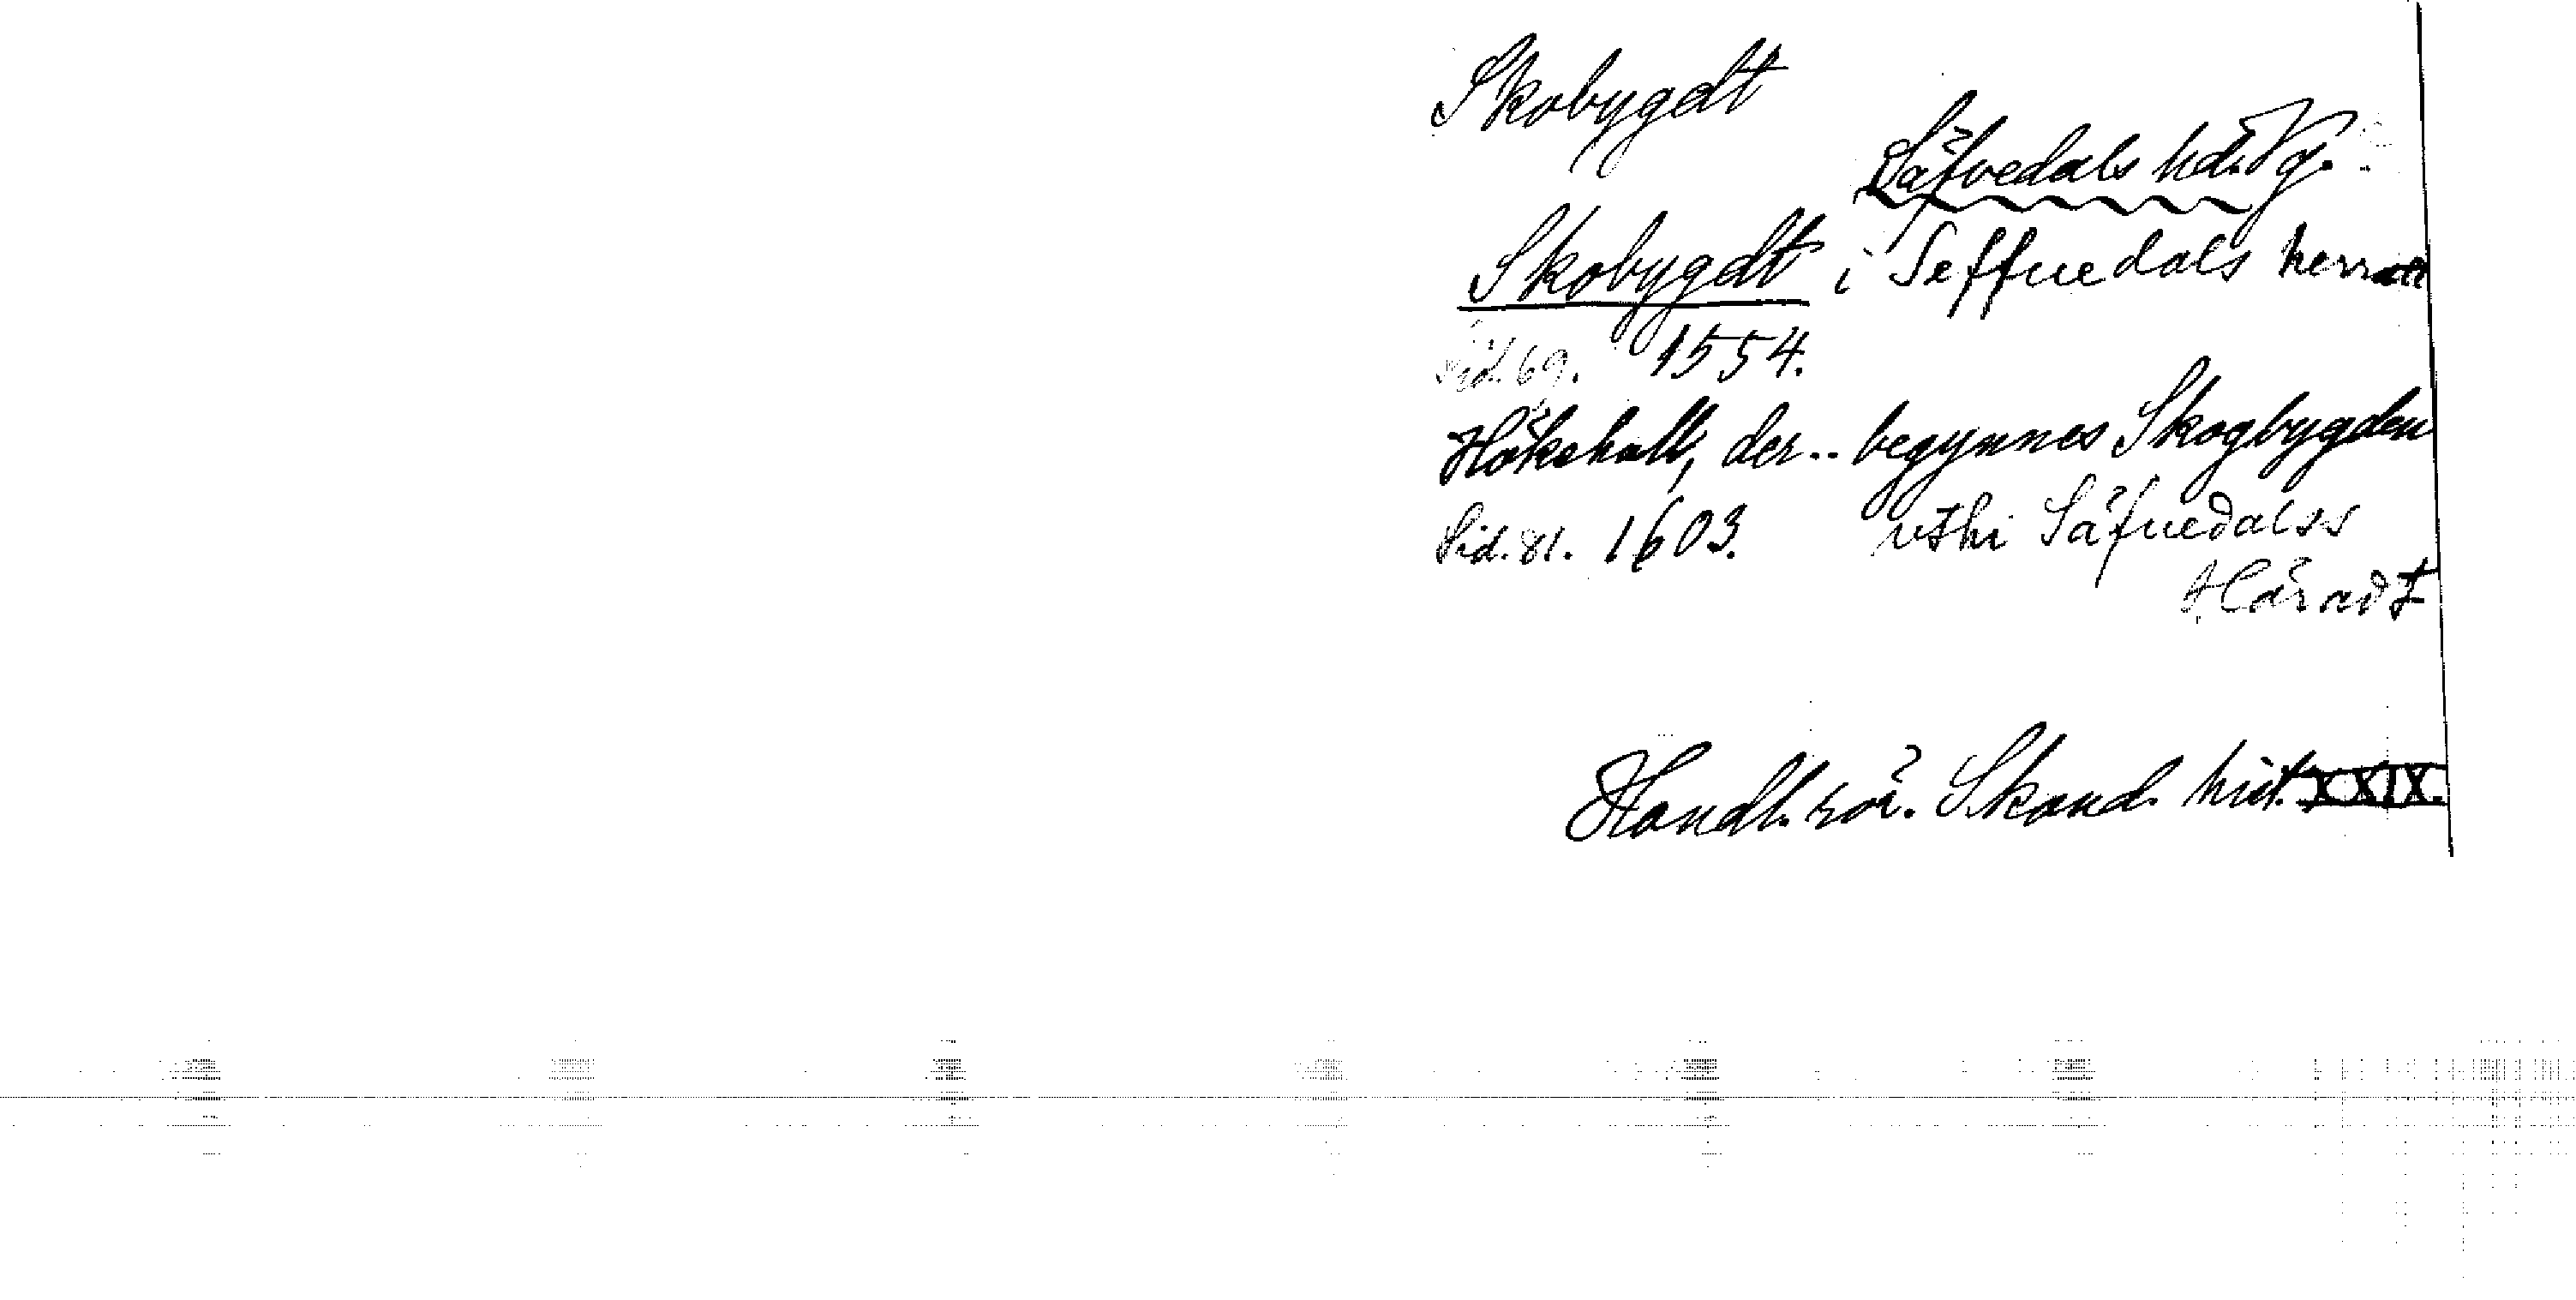 Skobygdt
Säfvedals hd. Vg.
Skobygdt i Seffuedals herratt
Sid. 69. 1554.
Hökshall, der .. begynnes Skogbygden
Sid. 81. 1603. vthi Säfuedalss
Häradt
Handl. rör. Skand. hist. XXIX.